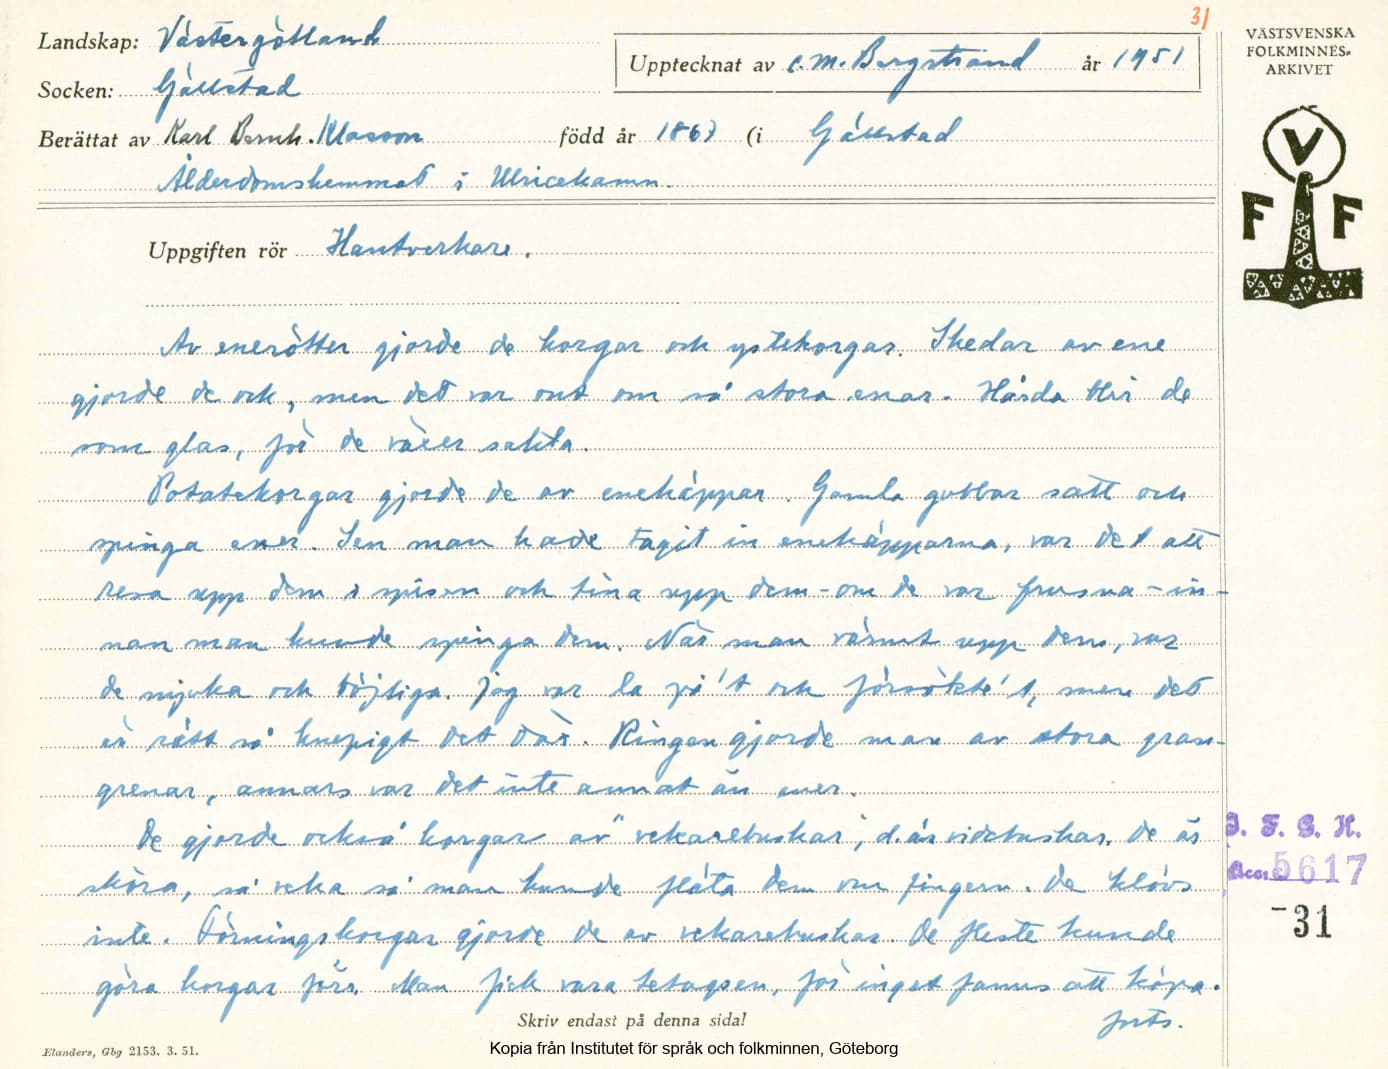 31
Landskap: Västergötland
Upptecknat av C.M. Bergstrand år 1951
VÄSTSVENSKA
FOLKMINNES-
ARKIVET
Socken: Gällstad
Berättat av Karl Bernh. Klasson född år 1867 (i Gällstad
Ålderdomshemmet i Ulricehamn.
V
F F
Uppgiften rör Hantverkare.
Av enerötter gjorde de korgar och ystekorgar. Skedar av ene
gjorde de ock, men det var ont om så stora enar. Hårda blir de
som glas, för de växer sakta.
Potatekorgar gjorde de av enekäppar. Gamla gubbar satt och
spinga ener. Sen man hade tagit in enekäpparna, var det att
resa upp dem i spisen och tina upp dem - om de var frusna - in-
nan man kunde spinga dem. När man värmt upp dem, var
de mjuka och töjliga. Jag var la på't och försökte't, men det
är rätt så knepigt det där. Ringen gjorde man av stora gran-
grenar, annars var det inte annat än ener.
De gjorde också korgar av "vekarebuskar", d.ä. videbuskar. De äs
sköra, så veka så man kunde fläta dem om fingern. De klövs
inte. Förningskorgar gjorde de av vekarebuskar. De fleste kunde
göra korgar förr. Man fick vara tetagsen, för inget fanns att köpa.
forts.
I. F. G. H.
Acc. 5617
-31
Skriv endast på denna sida!
Elanders, Gbg 2153. 3. 51.
Kopia från Institutet för språk och folkminnen, Göteborg